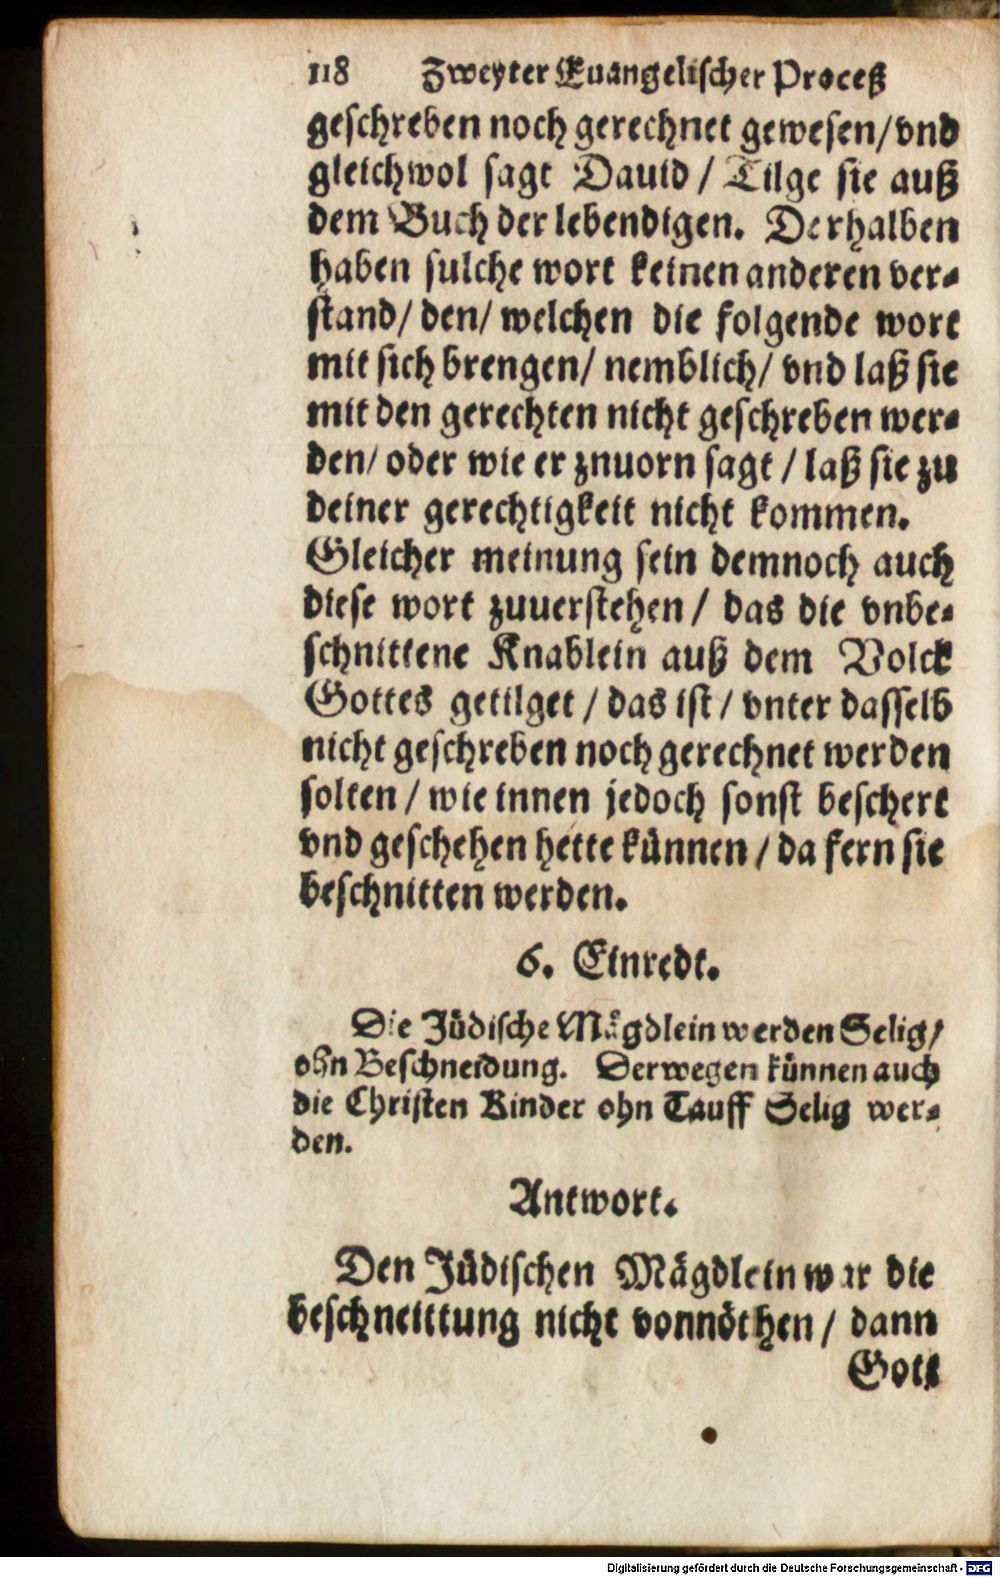 118 Zweyter Euangelischer Proceß
geschreben noch gerechnet gewesen/ vnd
gleichwol sagt Dauid / Tilge sie auß
dem Buch der lebendigen. Derhalben
haben sulche wort keinen anderen ver-
stand/ den/ welchen die folgende wort
mit sich brengen/ nemblich/ vnd laß sie
mit den gerechten nicht geschreben wer-
den/ oder wie er znuorn sagt / laß sie zu
deiner gerechtigkeit nicht kommen.
Gleicher meinung sein demnoch auch
diese wort zuuerstehen / das die vnbe-
schnittene Knablein auß dem Volck
Gottes getilget / das ist / vnter dasselb
nicht geschreben noch gerechnet werden
solten / wie innen jedoch sonst beschert
vnd geschehen hette künnen / da fern sie
beschnitten werden.
6. Einredt.
Die Jüdische Mägdlein werden Selig/
ohn Beschneidung. Derwegen künnen auch
die Christen Kinder ohn Tauff Selig wer-
den.
Antwort.
Den Jüdischen Mägdlein war die
beschneittung nicht vonnöthen / dann
Gott
Digitalisierung gefördert durch die Deutsche Forschungsgemeinschaft - DFG